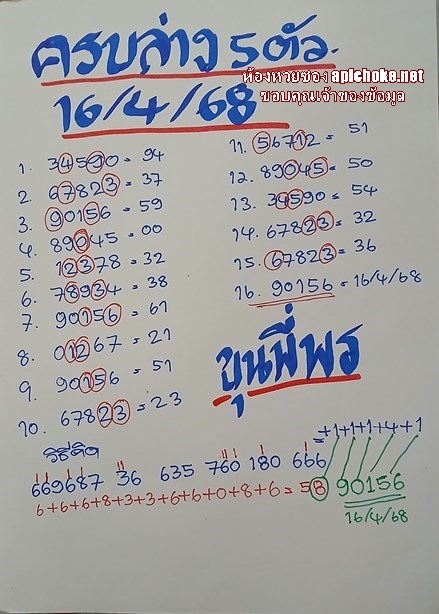 ครบล่าง 5 ตัว.
ห้องหวยซอง apichoke.net
ขอบคุณเจ้าของข้อมูล
16/4/68
1. 34590 = 94
2. 67823 = 37
3. 90156 = 59
4. 89045 = 00
5. 12378 = 32
6. 78934 = 38
7. 90156 = 61
8. 01267 = 21
9. 90156 = 51
10. 67823 = 23
11. 56712 = 51
12. 89045 = 50
13. 34590 = 54
14. 67823 = 32
15. 67823 = 36
16. 90156 = 16/4/68
ขุนพี่พร
วิธีคิด
+1+1+1+4+1
669687 36 635 760 180 666
6+6+6+8+3+3+6+6+0+8+6 = 58 90156
16/4/68